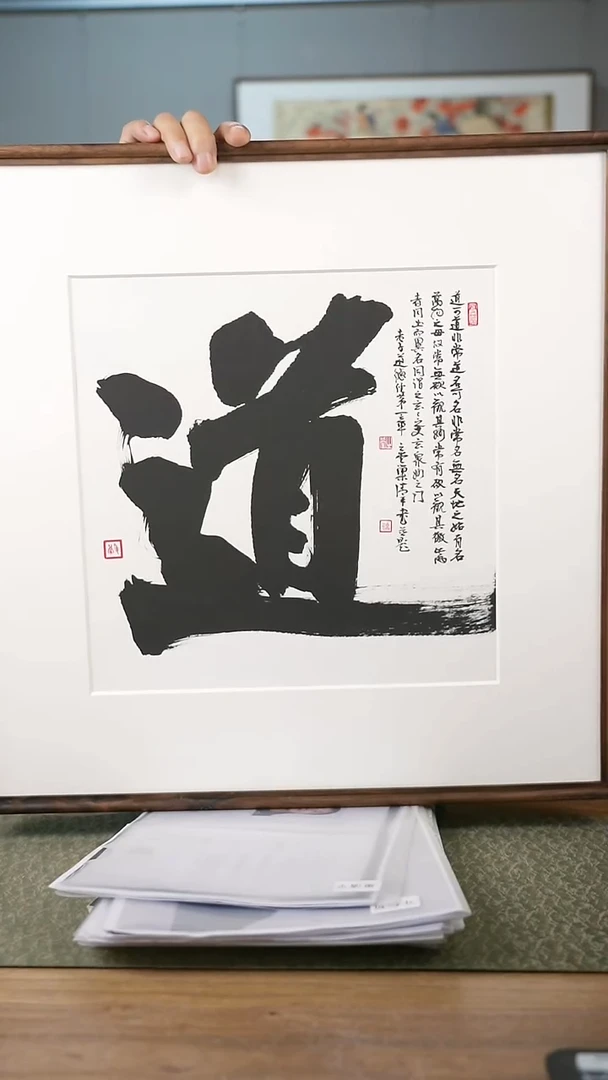 道
道可道非常道名可名非常名無名天地之始有名
萬物之母故常無欲以觀其妙常有欲以觀其徼此兩
者同出而異名同謂之玄玄之又玄衆妙之门
老子道德经第一章